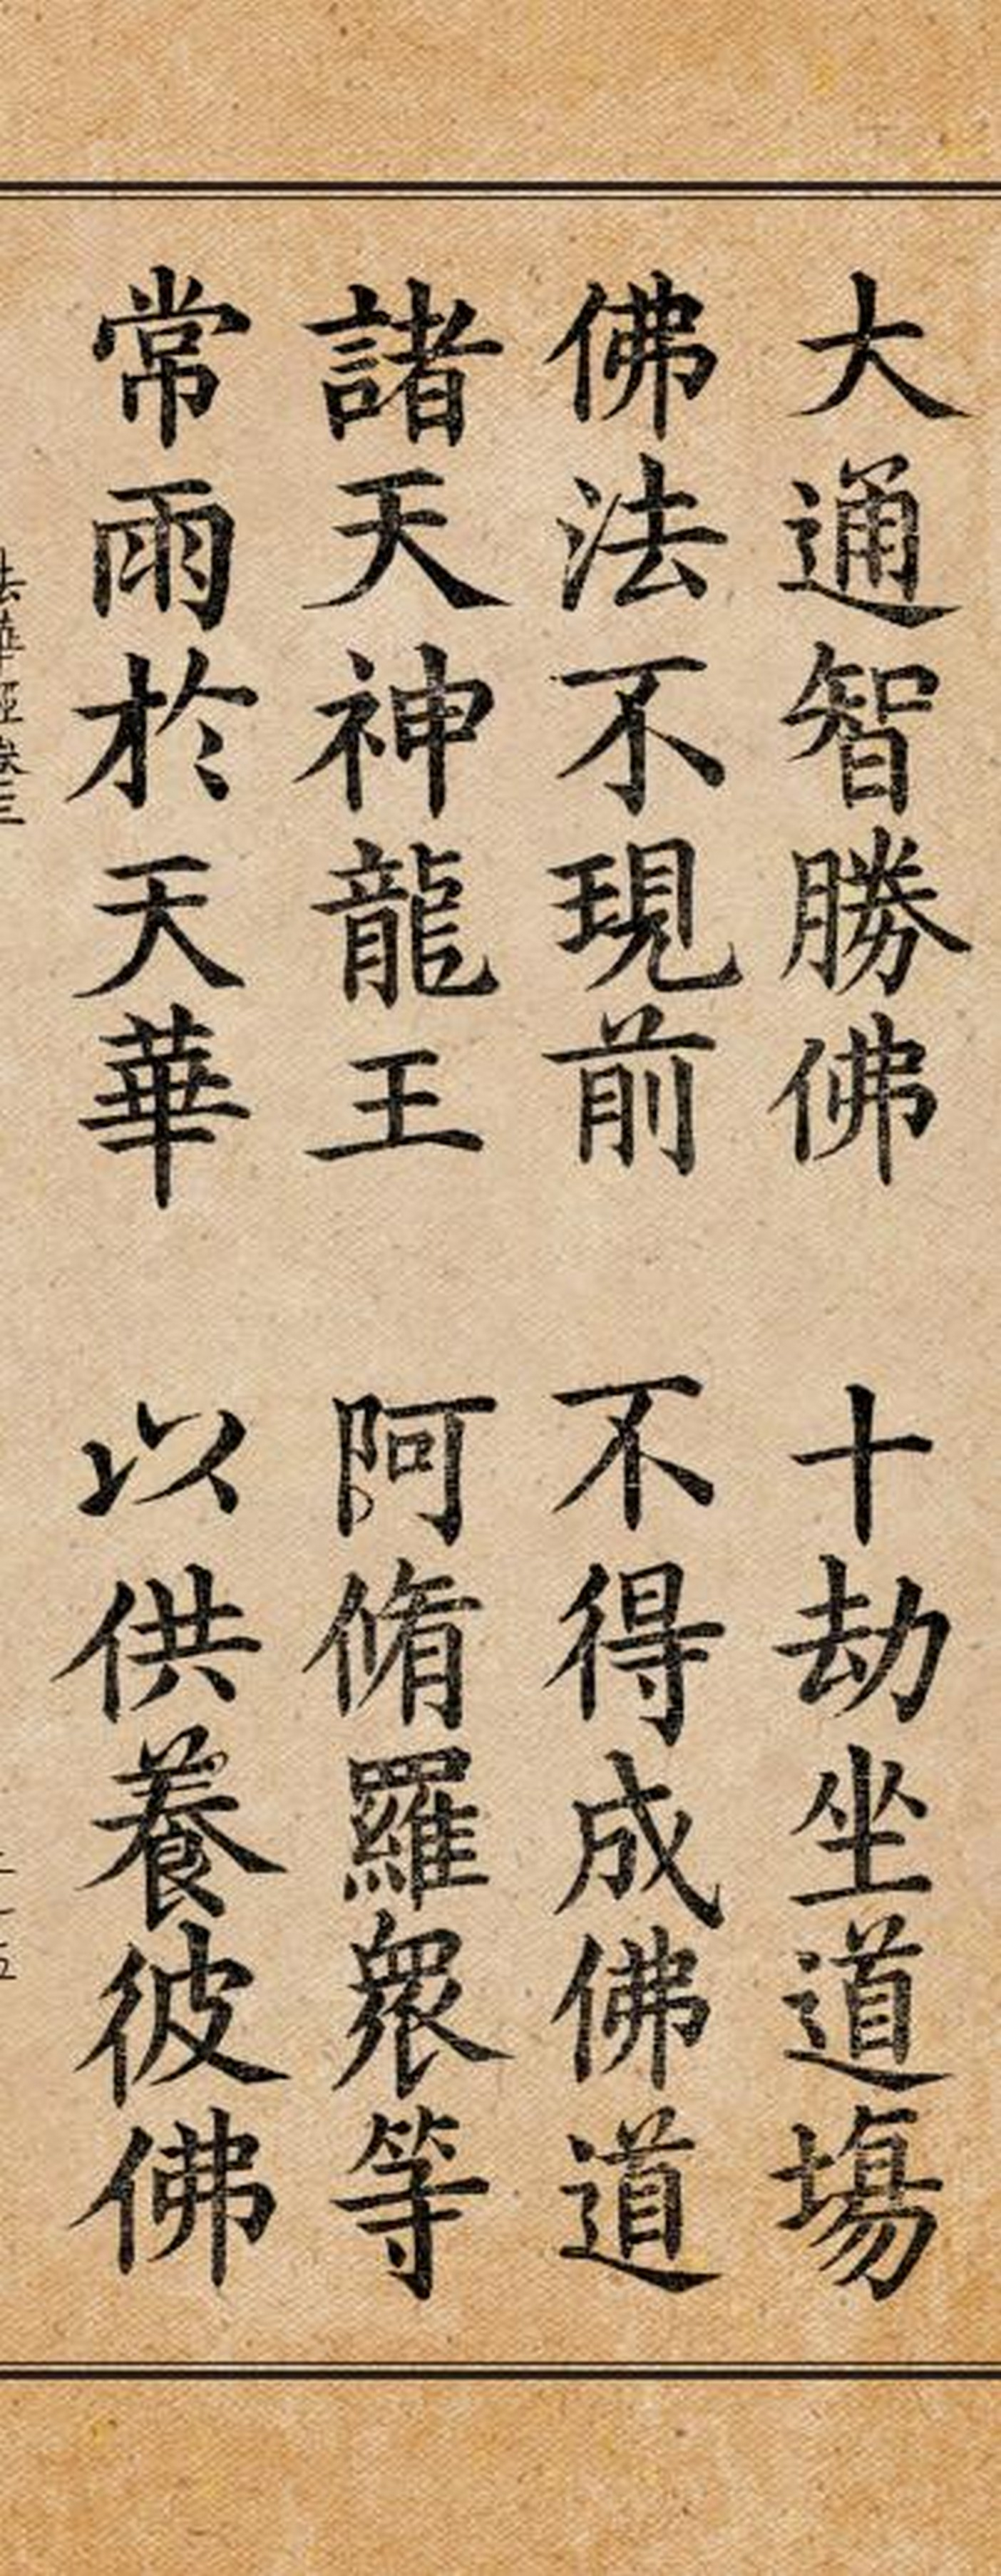 大通智勝佛　十劫坐道場
佛法不現前　不得成佛道
諸天神龍王　阿脩羅眾等
常雨於天華　以供養彼佛
法華經卷三